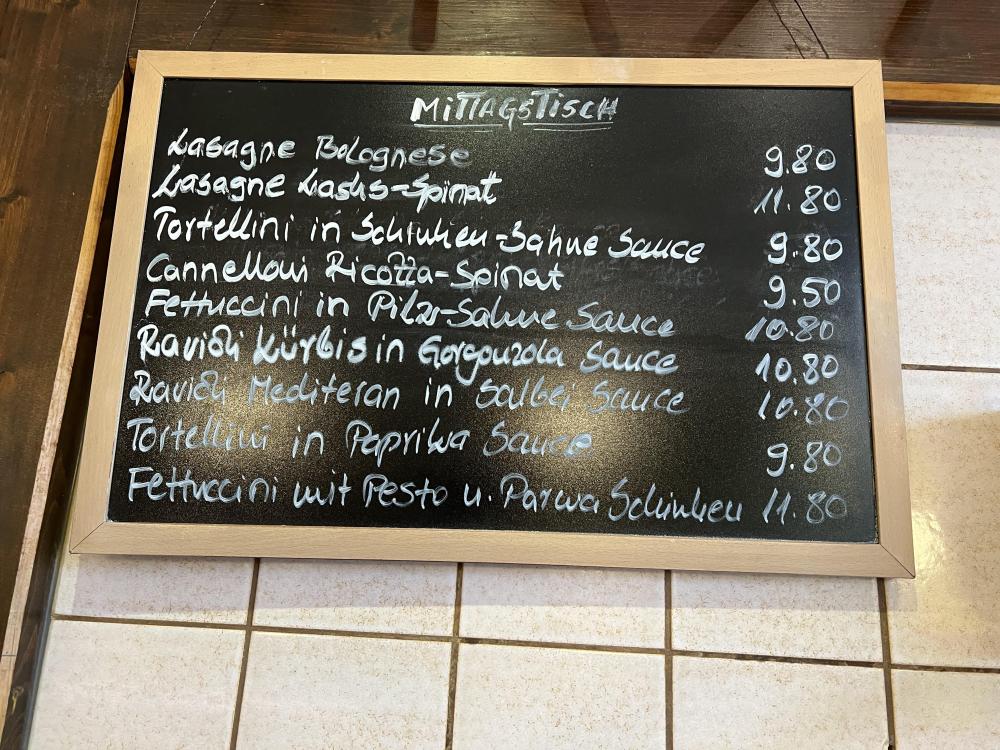 MITTAGSTISCH
Lasagne Bolognese 9.80
Lasagne Lachs-Spinat 11.80
Tortellini in Schinken-Sahne Sauce 9.80
Cannelloni Ricotta-Spinat 9.50
Fettuccini in Pilz-Sahne Sauce 10.80
Ravioli Kürbis in Gorgonzola Sauce 10.80
Ravioli Mediteran in Salbei Sauce 10.80
Tortellini in Paprika Sauce 9.80
Fettuccini mit Pesto u. Parma Schinken 11.80